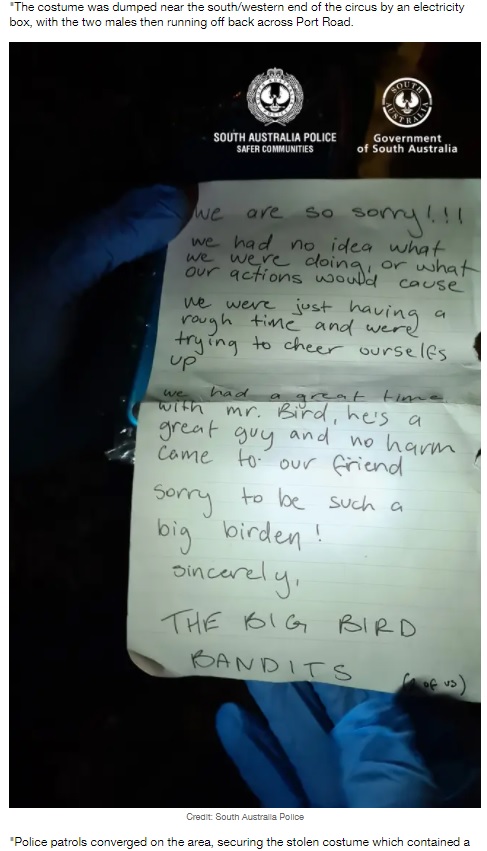 "The costume was dumped near the south/western end of the circus by an electricity
box, with the two males then running off back across Port Road.
SOUTH AUSTRALIA POLICE
SAFER COMMUNITIES
SOUTH
AUSTRALIA
Government
of South Australia
we are so sorry!!!
we had no idea what
we were doing, or what
our actions would cause
we were just having a
rough time and were
trying to cheer ourselfs
up
we had a great time
with mr. Bird, he's a
great guy and no harm
came to our friend
sorry to be such a
big birden!
sincerely,
THE BIG BIRD
BANDITS
of us)
Credit: South Australia Police
"Police patrols converged on the area, securing the stolen costume which contained a